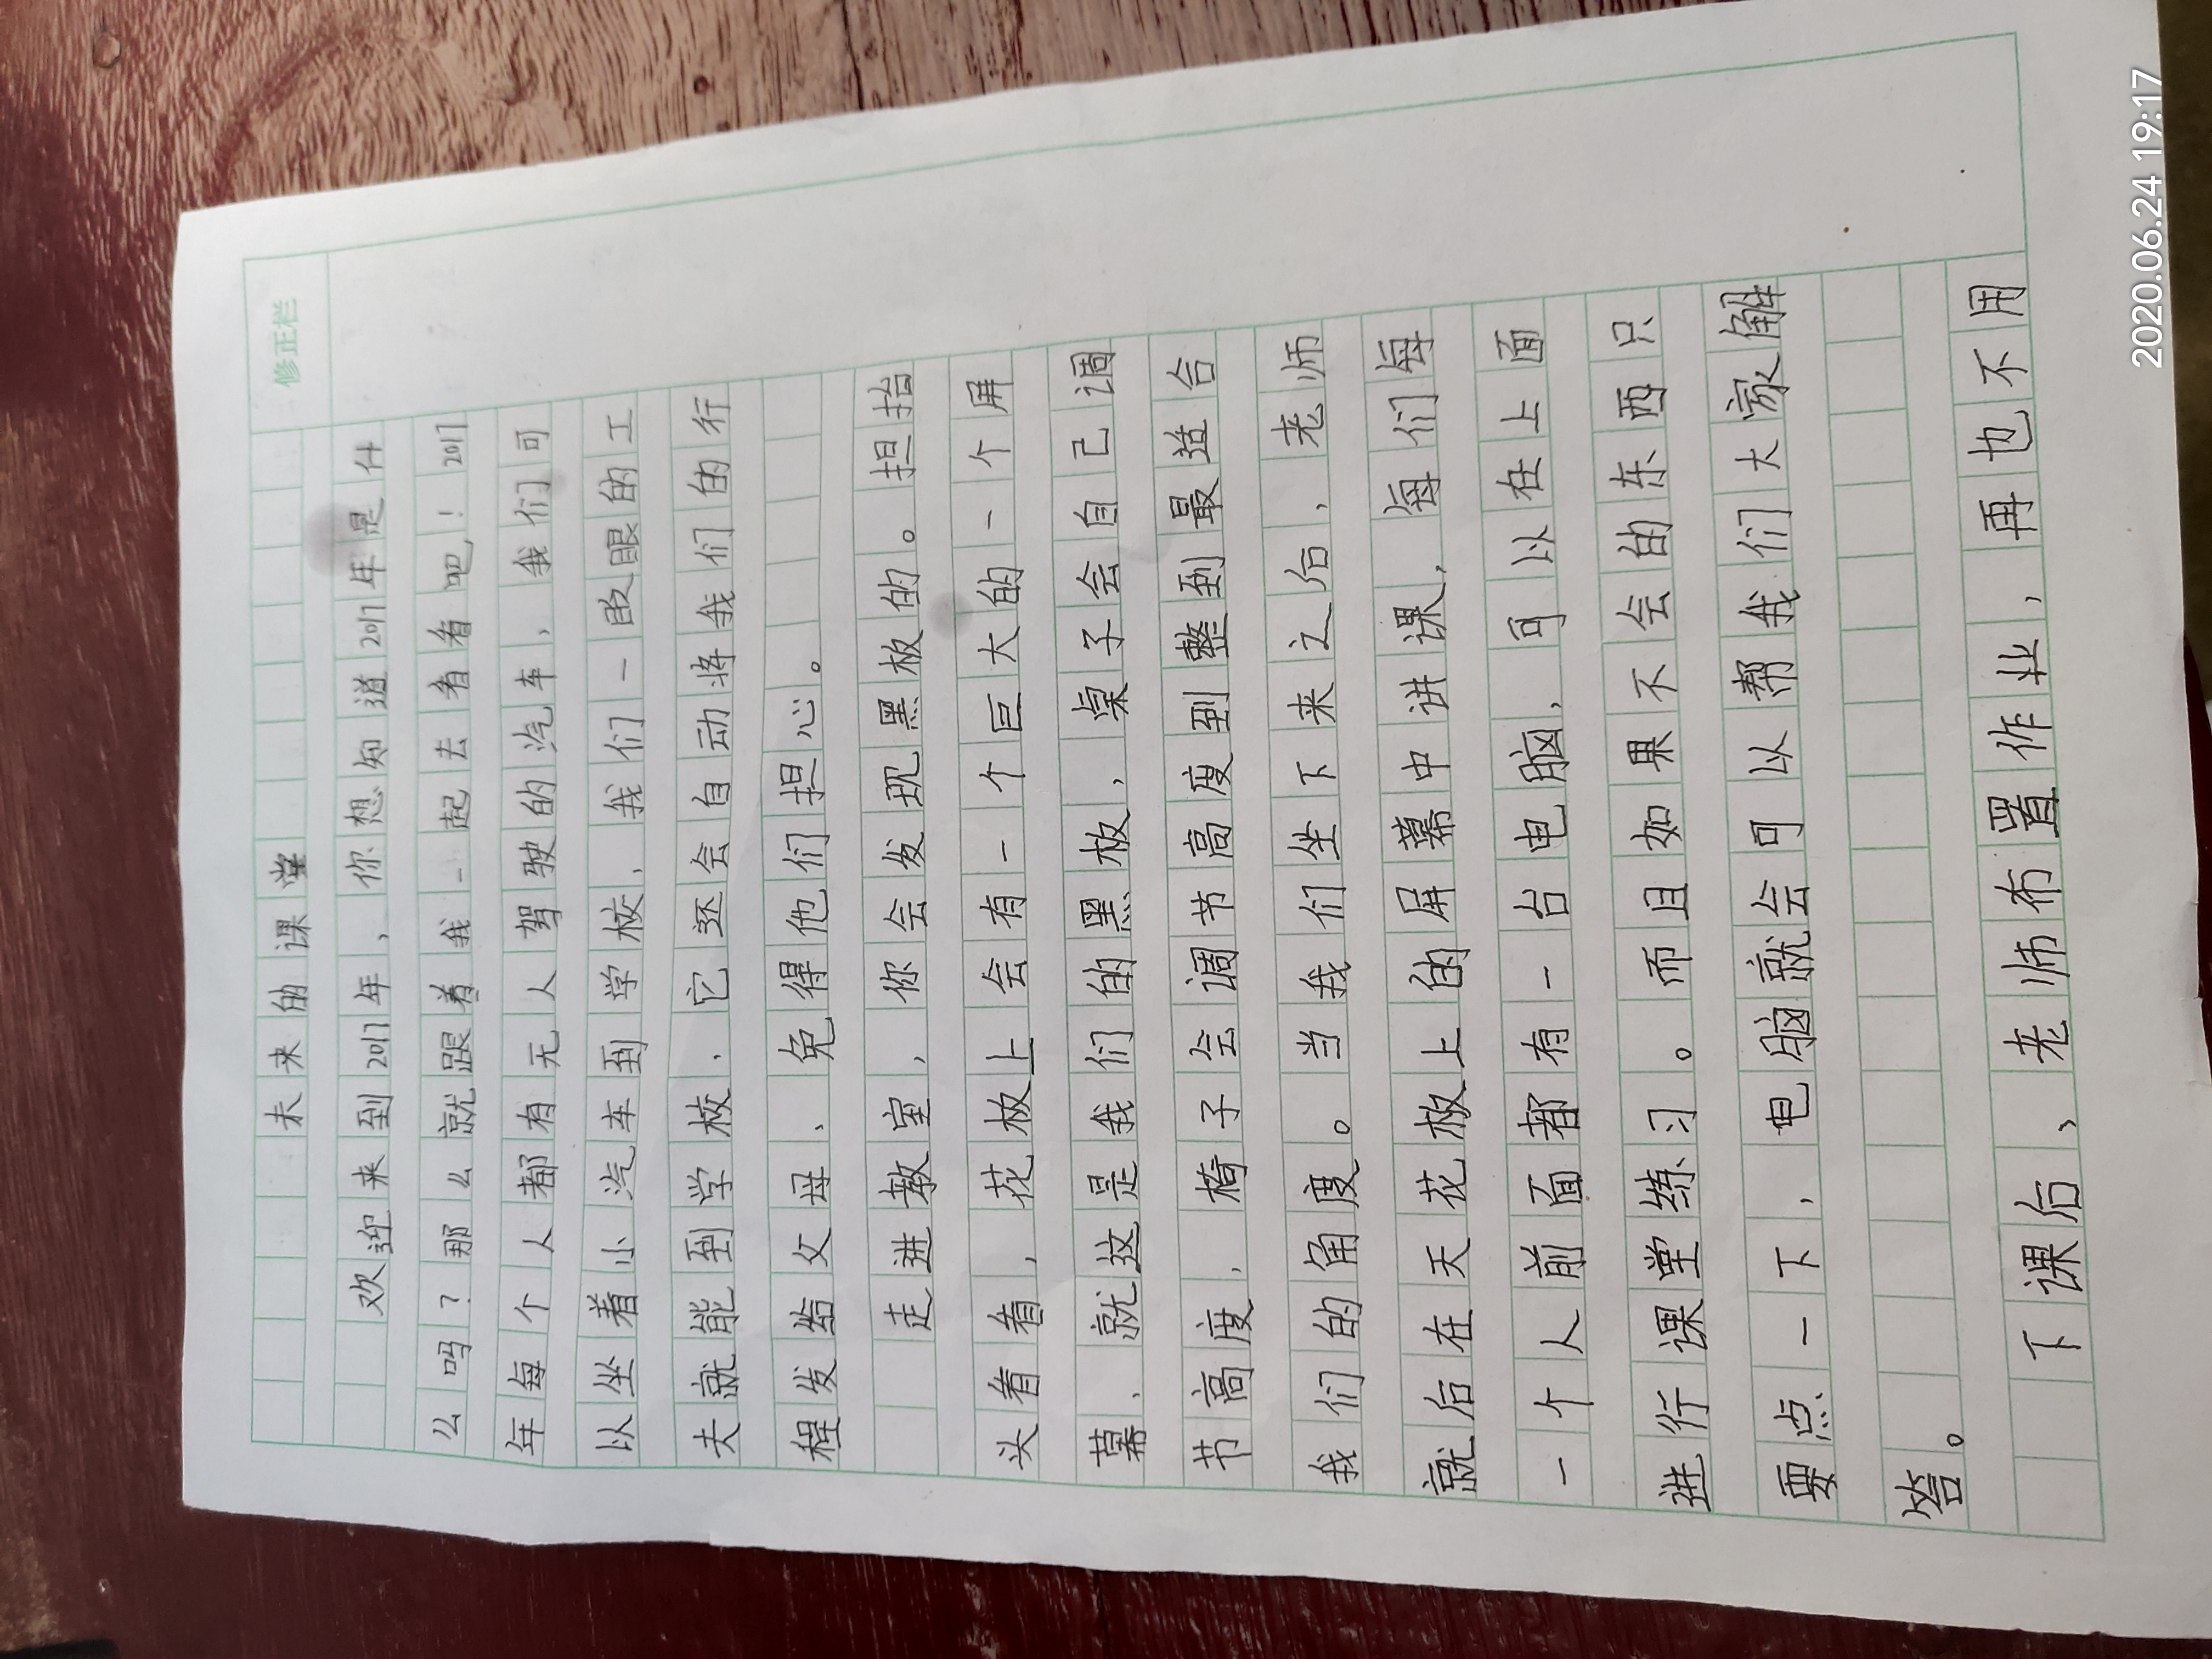 修正栏
未来的课堂
欢迎来到2017年、你想知道2017年是什
么吗？那么就跟着我一起去看看吧！2017
年每个人都有无人驾驶的汽车，我们可
以坐着小汽车到学校，我们一眨眼的工
夫就能到学校，它还会自动将我们的行
程发给父母、免得他们担心。
走进教室，你会发现黑板的。担抬
头看看，花板上会有一个巨大的一个屏
幕、就这是我们的黑板，桌子会自己调
节高度，椅子会调节高度到整到最适合
我们的角度。当我们坐下来之后，老师
就后在天花板上的屏幕中讲课，每们每
一个人前面都有一台电脑，可以在上面
进行课堂练习。而且如果不会的东西只
要点一下，电脑就会可以帮我们大家解
答。
下课后、老师布置作业，再也不用
2020.06.24 19:17